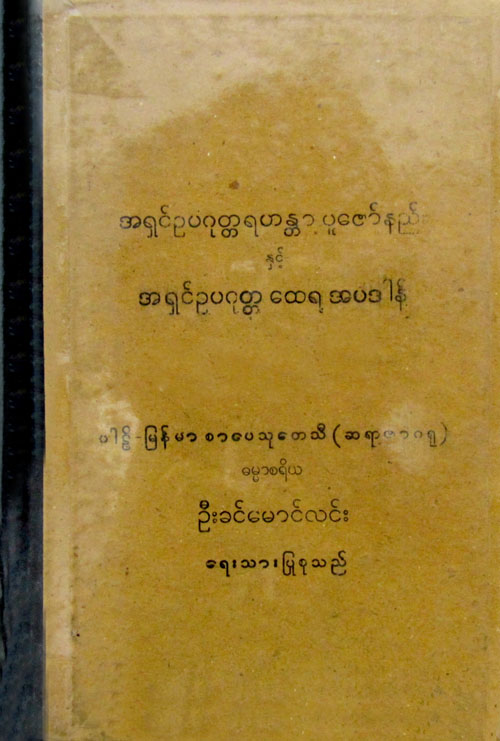 အရှင်ဥပဂုတ္တရဟန္တာ ပူဇော်နည်း
နှင့်
အရှင်ဥပဂုတ္တ ထေရ အပဒါန်
ပါဠိ-မြန်မာစာပေသုတေသီ (ဆရာဇာဂရူ)
ဓမ္မာစရိယ
ဦးခင်မောင်လင်း
ရေးသားပြုစုသည်